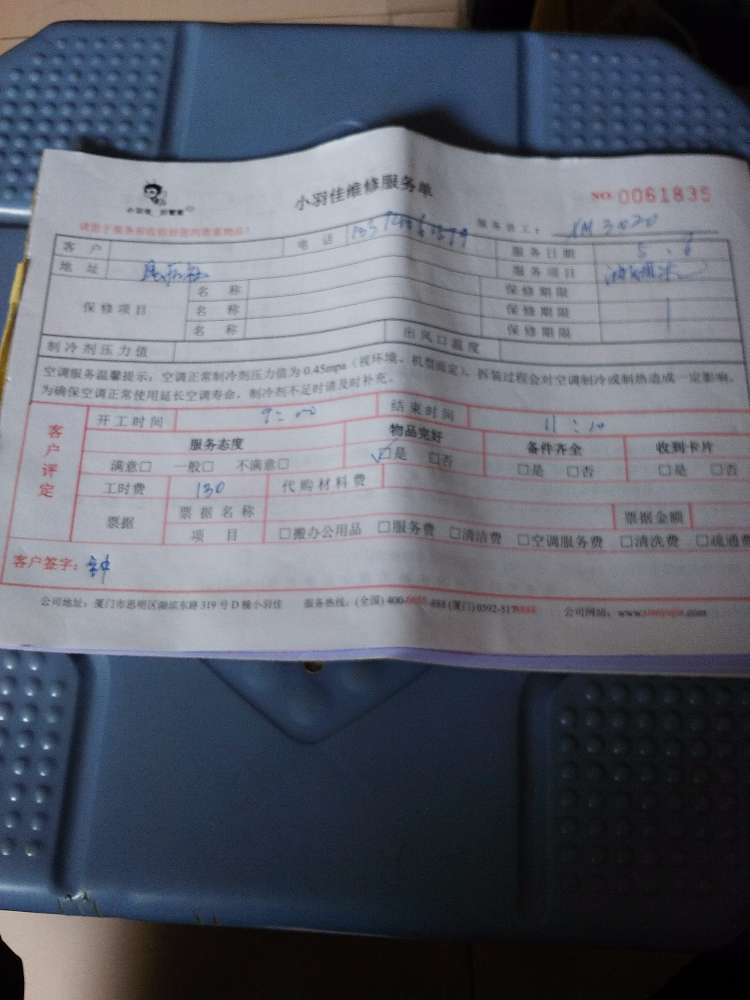 小羽佳维修服务单
小羽佳
NO. 0061835
服务员工： XM 3020
客户 电话 服务日期 5.6
地址 服务项目
保修项目 名称 保修期限
名称 保修期限
名称 保修期限
制冷剂压力值 出风口温度
空调服务温馨提示：空调正常制冷剂压力值为0.45mpa（视环境、机型而定），拆装过程会对空调制冷或制热造成一定影响。
为确保空调正常使用延长空调寿命，制冷剂不足时请及时补充。
客户评定
开工时间 9:00 结束时间 11:10
服务态度 物品完好 备件齐全 收到卡片
满意□ 一般□ 不满意□ ☑是 □否 □是 □否 □是 □否
工时费 130 代购材料费
票据 票据名称 票据金额
项目 □搬办公用品 □服务费 □清洁费 □空调服务费 □清洗费 □疏通费
客户签字：钟
公司地址：厦门市思明区湖滨东路319号D幢小羽佳 服务热线：(全国) 400- -888 (厦门) 0592-5178888 公司网站：www.xiaoyujia.com